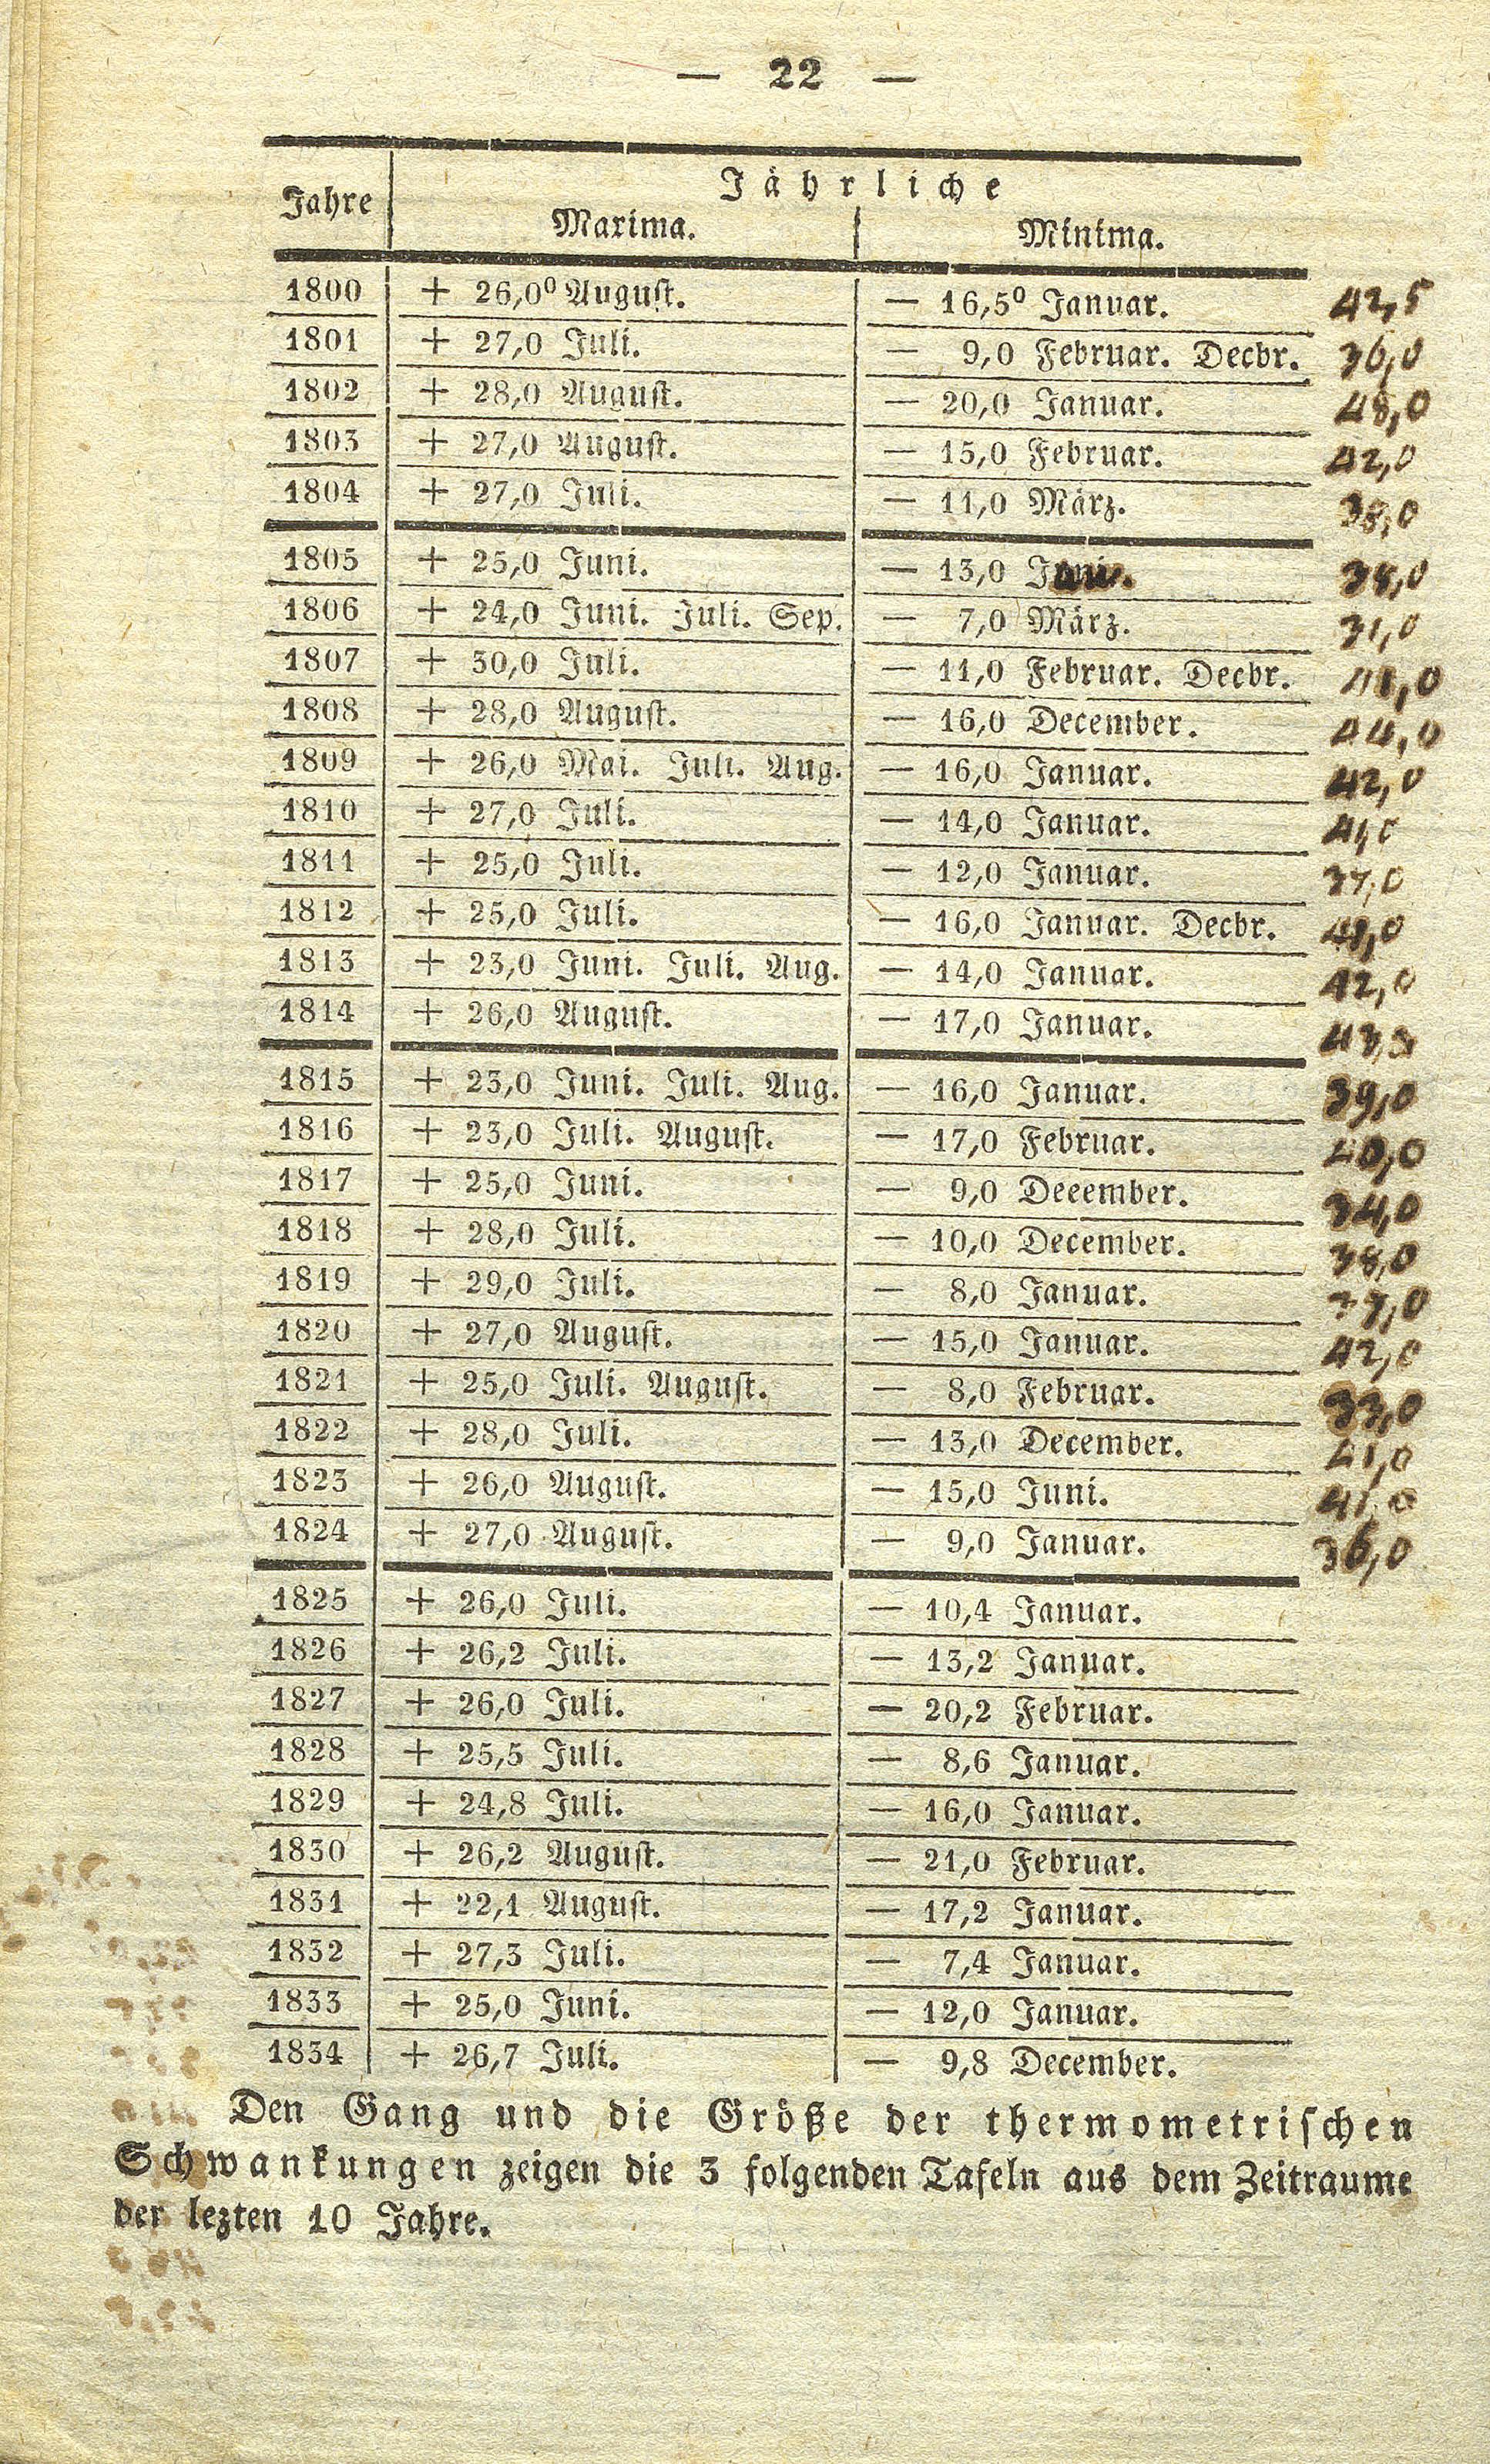 — 22 —
Jahre Jährliche
Maxima. Minima.
1800 + 26,0° August. — 16,5° Januar. 42,5
1801 + 27,0 Juli. — 9,0 Februar. Decbr. 36,0
1802 + 28,0 August. — 20,0 Januar. 48,0
1803 + 27,0 August. — 15,0 Februar. 42,0
1804 + 27,0 Juli. — 11,0 März. 38,0
1805 + 25,0 Juni. — 13,0 38,0
1806 + 24,0 Juni. Juli. Sep. — 7,0 März. 31,0
1807 + 30,0 Juli. — 11,0 Februar. Decbr. 41,0
1808 + 28,0 August. — 16,0 December. 44,0
1809 + 26,0 Mai. Juli. Aug. — 16,0 Januar. 42,0
1810 + 27,0 Juli. — 14,0 Januar. 41,0
1811 + 25,0 Juli. — 12,0 Januar. 37,0
1812 + 25,0 Juli. — 16,0 Januar. Decbr. 41,0
1813 + 23,0 Juni. Juli. Aug. — 14,0 Januar. 42,0
1814 + 26,0 August. — 17,0 Januar.
1815 + 23,0 Juni. Juli. Aug. — 16,0 Januar. 39,0
1816 + 23,0 Juli. August. — 17,0 Februar. 40,0
1817 + 25,0 Juni. — 9,0 Deeember. 34,0
1818 + 28,0 Juli. — 10,0 December. 38,0
1819 + 29,0 Juli. — 8,0 Januar. 37,0
1820 + 27,0 August. — 15,0 Januar. 42,0
1821 + 25,0 Juli. August. — 8,0 Februar. 33,0
1822 + 28,0 Juli. — 13,0 December. 41,0
1823 + 26,0 August. — 15,0 Juni. 41,0
1824 + 27,0 August. — 9,0 Januar. 36,0
1825 + 26,0 Juli. — 10,4 Januar.
1826 + 26,2 Juli. — 13,2 Januar.
1827 + 26,0 Juli. — 20,2 Februar.
1828 + 25,5 Juli. — 8,6 Januar.
1829 + 24,8 Juli. — 16,0 Januar.
1830 + 26,2 August. — 21,0 Februar.
1831 + 22,1 August. — 17,2 Januar.
1832 + 27,3 Juli. — 7,4 Januar.
1833 + 25,0 Juni. — 12,0 Januar.
1834 + 26,7 Juli. — 9,8 December.
Den Gang und die Größe der thermometrischen
Schwankungen zeigen die 3 folgenden Tafeln aus dem Zeitraume
der lezten 10 Jahre.